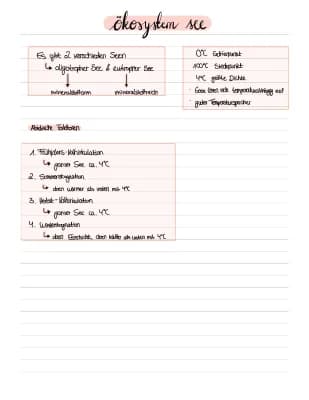 ökosystem see
Es gibt 2 verschieden Seen
↳ oligotropher See & eutropher See
mineralstoffarm mineralstoffreich
0°C Gefrierpunkt
100°C Siedepunkt
4°C größte Dichte
guter Temperaturspeicher
Abiotische Faktoren
1. Frühjahrs-Vollzirkulation
↳ ganzer See ca. 4°C
2. Sommerstagnation
↳ oben wärmer als unten mit 4°C
3. Herbst-Vollzirkulation
↳ ganzer See ca. 4°C
4. Winterstagnation
↳ oben Eisschicht, oben kälter als unten mit 4°C